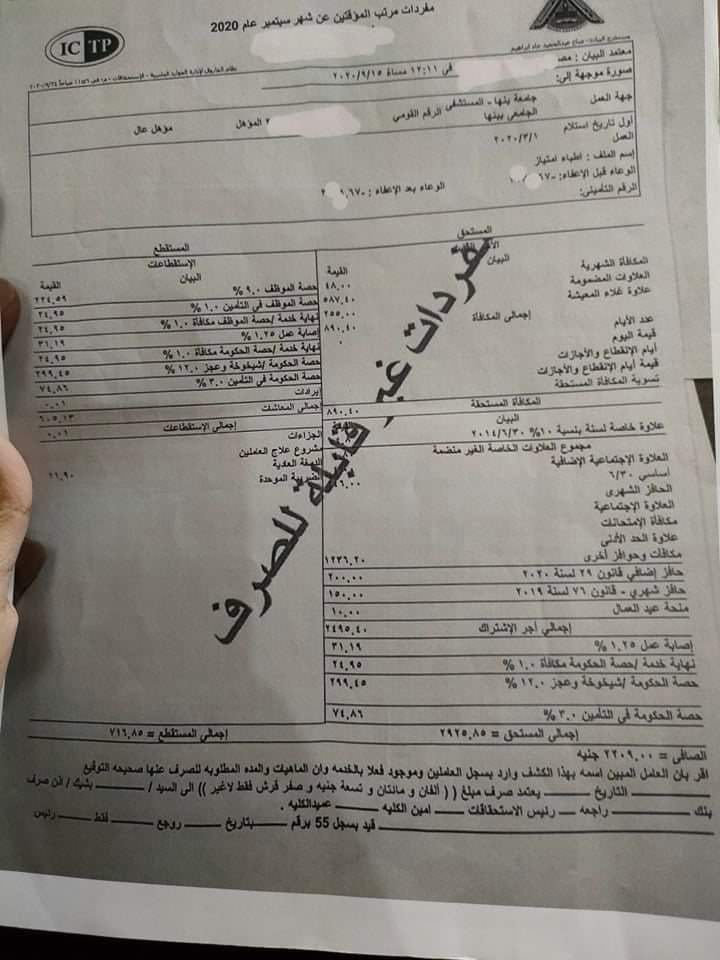 مفردات مرتب المؤقتين عن شهر سبتمبر عام 2020
IC TP
مستخرج البيانات: صباح عبدالحميد عابد ابراهيم
نظام الفاروق لإدارة الموارد البشرية - الإستحقاقات
معتمد البيان : مص
في ١٢:١١ مساءً ٢٠٢٠/٩/١٥
صورة موجهة إلي:
جهة العمل
جامعة بنها - المستشفى الجامعى ببنها
الرقم القومي
٢
المؤهل
مؤهل عال
أول تاريخ استلام العمل
٢٠٢٠/٣/١
إسم الملف : اطباء امتياز
الوعاء قبل الإعفاء:
الوعاء بعد الإعفاء :
الرقم التأميني:
مفردات غير قابلة للصرف
المستحق
البيان
القيمة
المكافأة الشهرية
٤٨.٠٠
العلاوات المضمومة
٥٨٧.٤٠
علاوة غلاء المعيشة
٢٥٥.٠٠
إجمالي المكافأة
٨٩٠.٤٠
عدد الأيام
٠
قيمة اليوم
أيام الإنقطاع والأجازات
قيمة أيام الإنقطاع والأجازات
تسوية المكافأة المستحقة
المكافأة المستحقة
٨٩٠.٤٠
البيان
علاوة خاصة لسنة بنسبة ١٠% ٢٠١٤/٦/٣٠
مجموع العلاوات الخاصة الغير منضمة
العلاوة الإجتماعية الإضافية
اساسي ٦/٣٠
الحافز الشهرى
العلاوة الإجتماعية
مكافأة الإمتحانات
علاوة الحد الأدنى
مكافآت وحوافز أخرى
١٢٣٦.٢٠
حافز إضافي قانون ٢٩ لسنة ٢٠٢٠
٢٠٠.٠٠
حافز شهري - قانون ٧٦ لسنة ٢٠١٩
١٥٠.٠٠
منحة عيد العمال
١٠.٠٠
إجمالي أجر الإشتراك
٢٤٩٥.٤٠
إصابة عمل ١.٢٥ %
٣١.١٩
نهاية خدمة /حصة الحكومة مكافأة ١.٠ %
٢٤.٩٥
حصة الحكومة /شيخوخة وعجز ١٢.٠ %
٢٩٩.٤٥
حصة الحكومة في التأمين ٣.٠ %
٧٤.٨٦
إجمالي المستحق = ٢٩٢٥.٨٥
المستقطع
الإستقطاعات
البيان
القيمة
حصة الموظف ٩.٠ %
٢٢٤.٥٩
حصة الموظف في التأمين ١.٠ %
٢٤.٩٥
نهاية خدمة /حصة الموظف مكافأة ١.٠ %
٢٤.٩٥
إصابة عمل ١.٢٥ %
٣١.١٩
نهاية خدمة /حصة الحكومة مكافأة ١.٠ %
٢٤.٩٥
حصة الحكومة /شيخوخة وعجز ١٢.٠ %
٢٩٩.٤٥
حصة الحكومة في التأمين ٣.٠ %
٧٤.٨٦
إيرادات
٠.٠١
إجمالي المعاشات
٦٠٥.١٣
إجمالي الإستقطاعات
٠.٠١
الجزاءات
مشروع علاج العاملين
الدمغة العادية
٢١.٩٠
الضريبة الموحدة
إجمالي المستقطع = ٧١٦.٨٥
الصافى = ٢٢٠٩.٠٠ جنيه
اقر بان العامل المبين اسمه بهذا الكشف وارد بسجل العاملين وموجود فعلا بالخدمه وان الماهيات والمده المطلوبه للصرف عنها صحيحه التوقيع
التاريخ يعتمد صرف مبلغ (( ألفان و مائتان و تسعة جنيه و صفر قرش فقط لاغير )) الى السيد / بشيك / اذن صرف
بنك راجعه رئيس الاستحقاقات امين الكليه عميدالكليه .
قيد بسجل 55 برقم بتاريخ روجع فقط رئيس